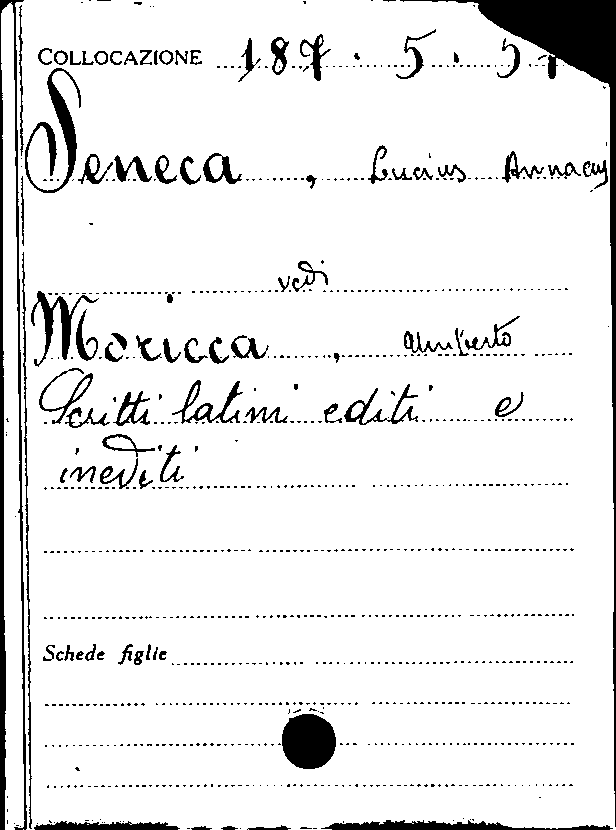 COLLOCAZIONE 187. 5. 5
Seneca, Lucius Annaeus
vedi
Moricca, Umberto
Scritti latini editi e
inediti
Schede figlie